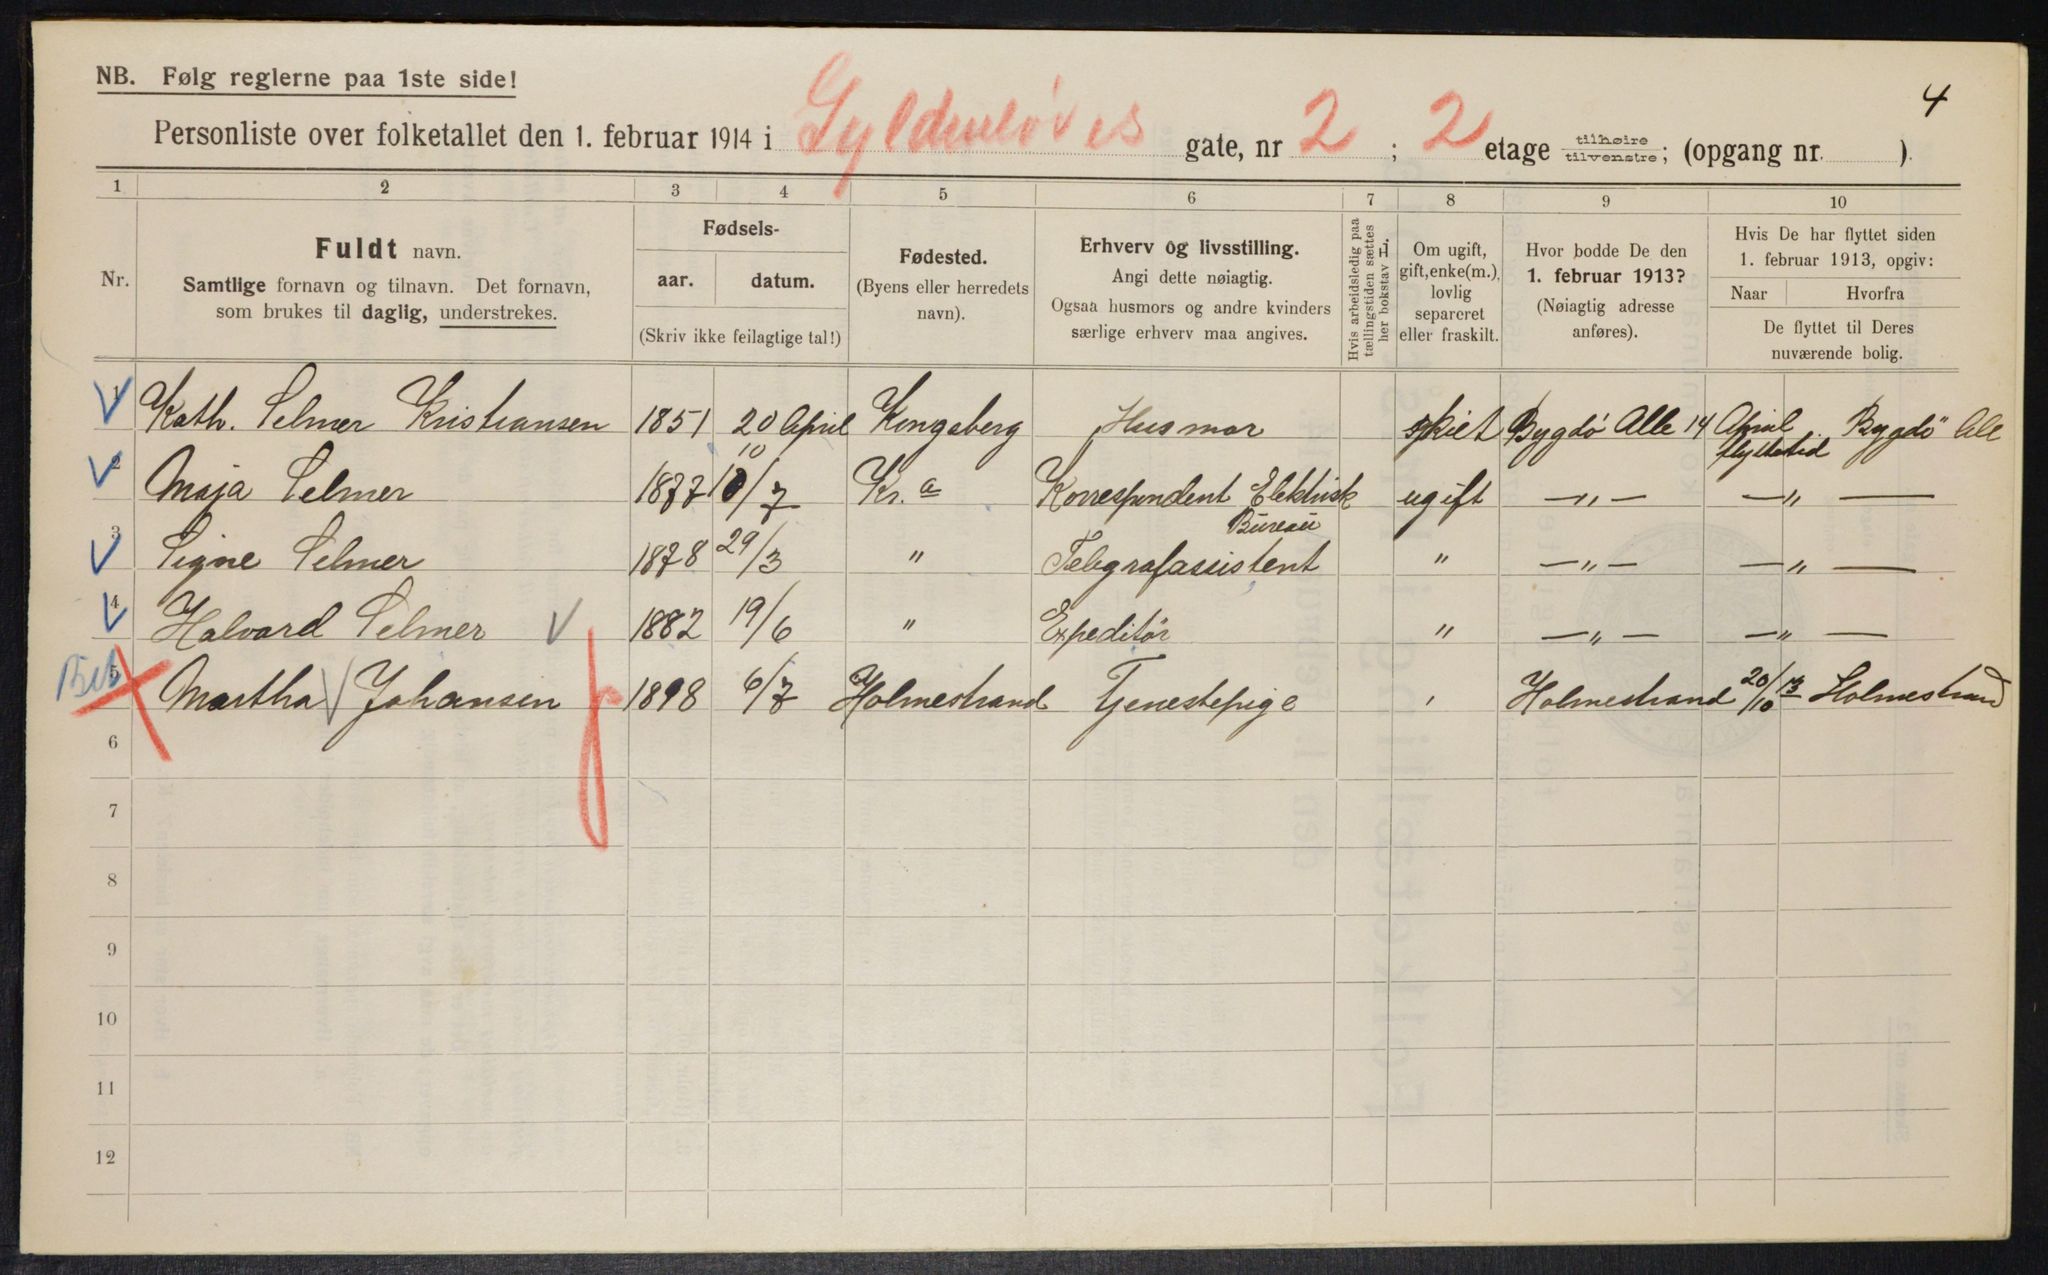 4
NB. Følg reglerne paa 1ste side!
Personliste over folketallet den 1. februar 1914 i Gyldenløves gate, nr 2 ; 2 etage tilhøire tilvenstre; (opgang nr. ).
1 2 3 4 5 6 7 8 9 10
Nr.
Fuldt navn.
Samtlige fornavn og tilnavn. Det fornavn,
som brukes til daglig, understrekes.
Fødsels-
aar. datum.
(Skriv ikke feilagtige tal!)
Fødested.
(Byens eller herredets
navn).
Erhverv og livsstilling.
Angi dette nøiagtig.
Ogsaa husmors og andre kvinders
særlige erhverv maa angives.
Hvis arbeidsledig paa
tællingstiden sættes
her bokstav L.
Om ugift,
gift, enke(m.),
lovlig
separeret
eller fraskilt.
Hvor bodde De den
1. februar 1913?
(Nøiagtig adresse
anføres).
Hvis De har flyttet siden
1. februar 1913, opgiv:
Naar Hvorfra
De flyttet til Deres
nuværende bolig.
1 Kath. Selmer Kristiansen 1851 20 April Kongsberg Husmor skilt Bygdö Alle 14 April flyttetid Bygdö Alle
2 Maja Selmer 1877 10 10/7 Kr.a Korrespondent Elektrisk Bureau ugift —„— —„—
3 Signe Selmer 1878 29/3 " Telegrafassistent " —„— —„—
4 Halvard Selmer 1882 19/6 " Expeditör " —„— —„—
5 Martha Johansen 1898 6/7 Holmestrand Tjenestepige Holmestrand 20/10 13 Holmestrand
6
7
8
9
10
11
12